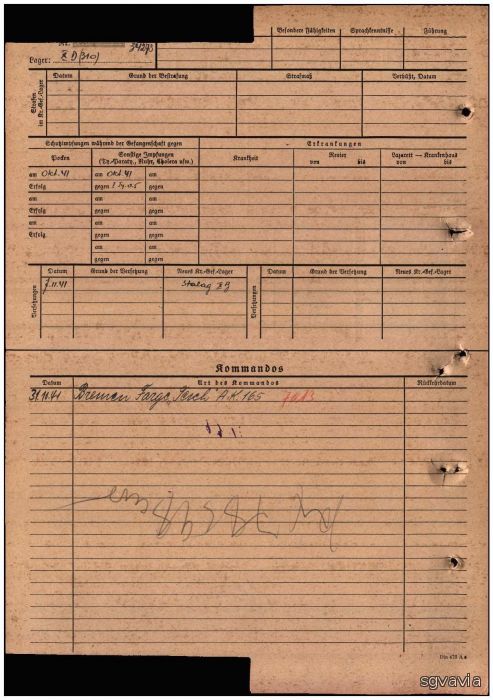 Besondere Fähigkeiten Sprachkenntnisse Führung
Lager: X D (310)
Strafen im Kr.-Gef.-Lager
Datum Grund der Bestrafung Strafmaß Verbüßt, Datum
Schutzimpfungen während der Gefangenschaft gegen Erkrankungen
Pocken Sonstige Impfungen (Ty.-Paraty., Ruhr, Cholera usw.) Krankheit Revier von bis Lazarett — Krankenhaus von bis
am Okt. 41 am Okt. 41 am
Erfolg gegen gegen
am am am
Erfolg gegen gegen
am am am
Erfolg gegen gegen
am am
gegen gegen
Versetzungen
Datum Grund der Versetzung Neues Kr.-Gef.-Lager Datum Grund der Versetzung Neues Kr.-Gef.-Lager
7.11.41 Stalag X B
Versetzungen
Kommandos
Datum Art des Kommandos Rückkehrdatum
Bremen Farge AK 165
Din 476 A 4
sgvavia